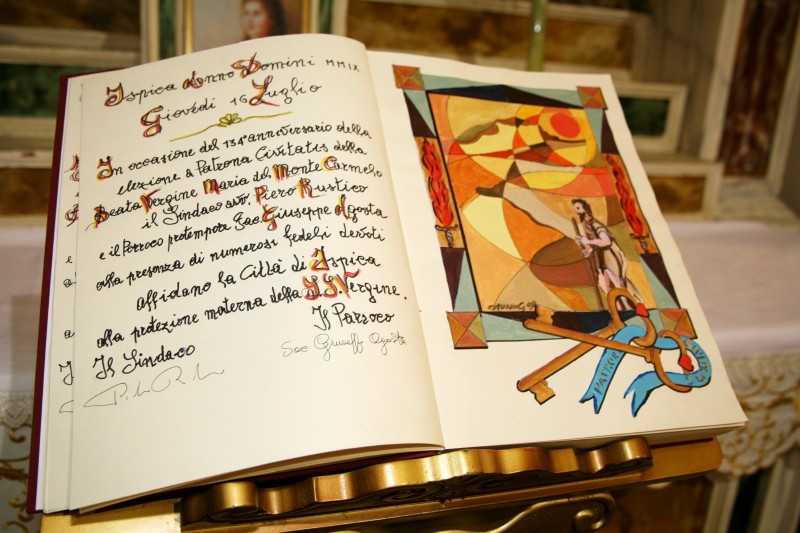 Ispica Anno Domini MMIX
Giovedì 16 Luglio
In occasione del 134° anniversario della
elezione a Patrona Civitatis della
Beata Vergine Maria del Monte Carmelo
il Sindaco avv. Piero Rustico
e il Parroco protempora Sac. Giuseppe Agosta
alla presenza di numerosi fedeli devoti
affidano la Città di Ispica
alla protezione materna della S.S. Vergine.
Il Parroco
Il Sindaco
Sac Giuseppe Agosta
PATRON